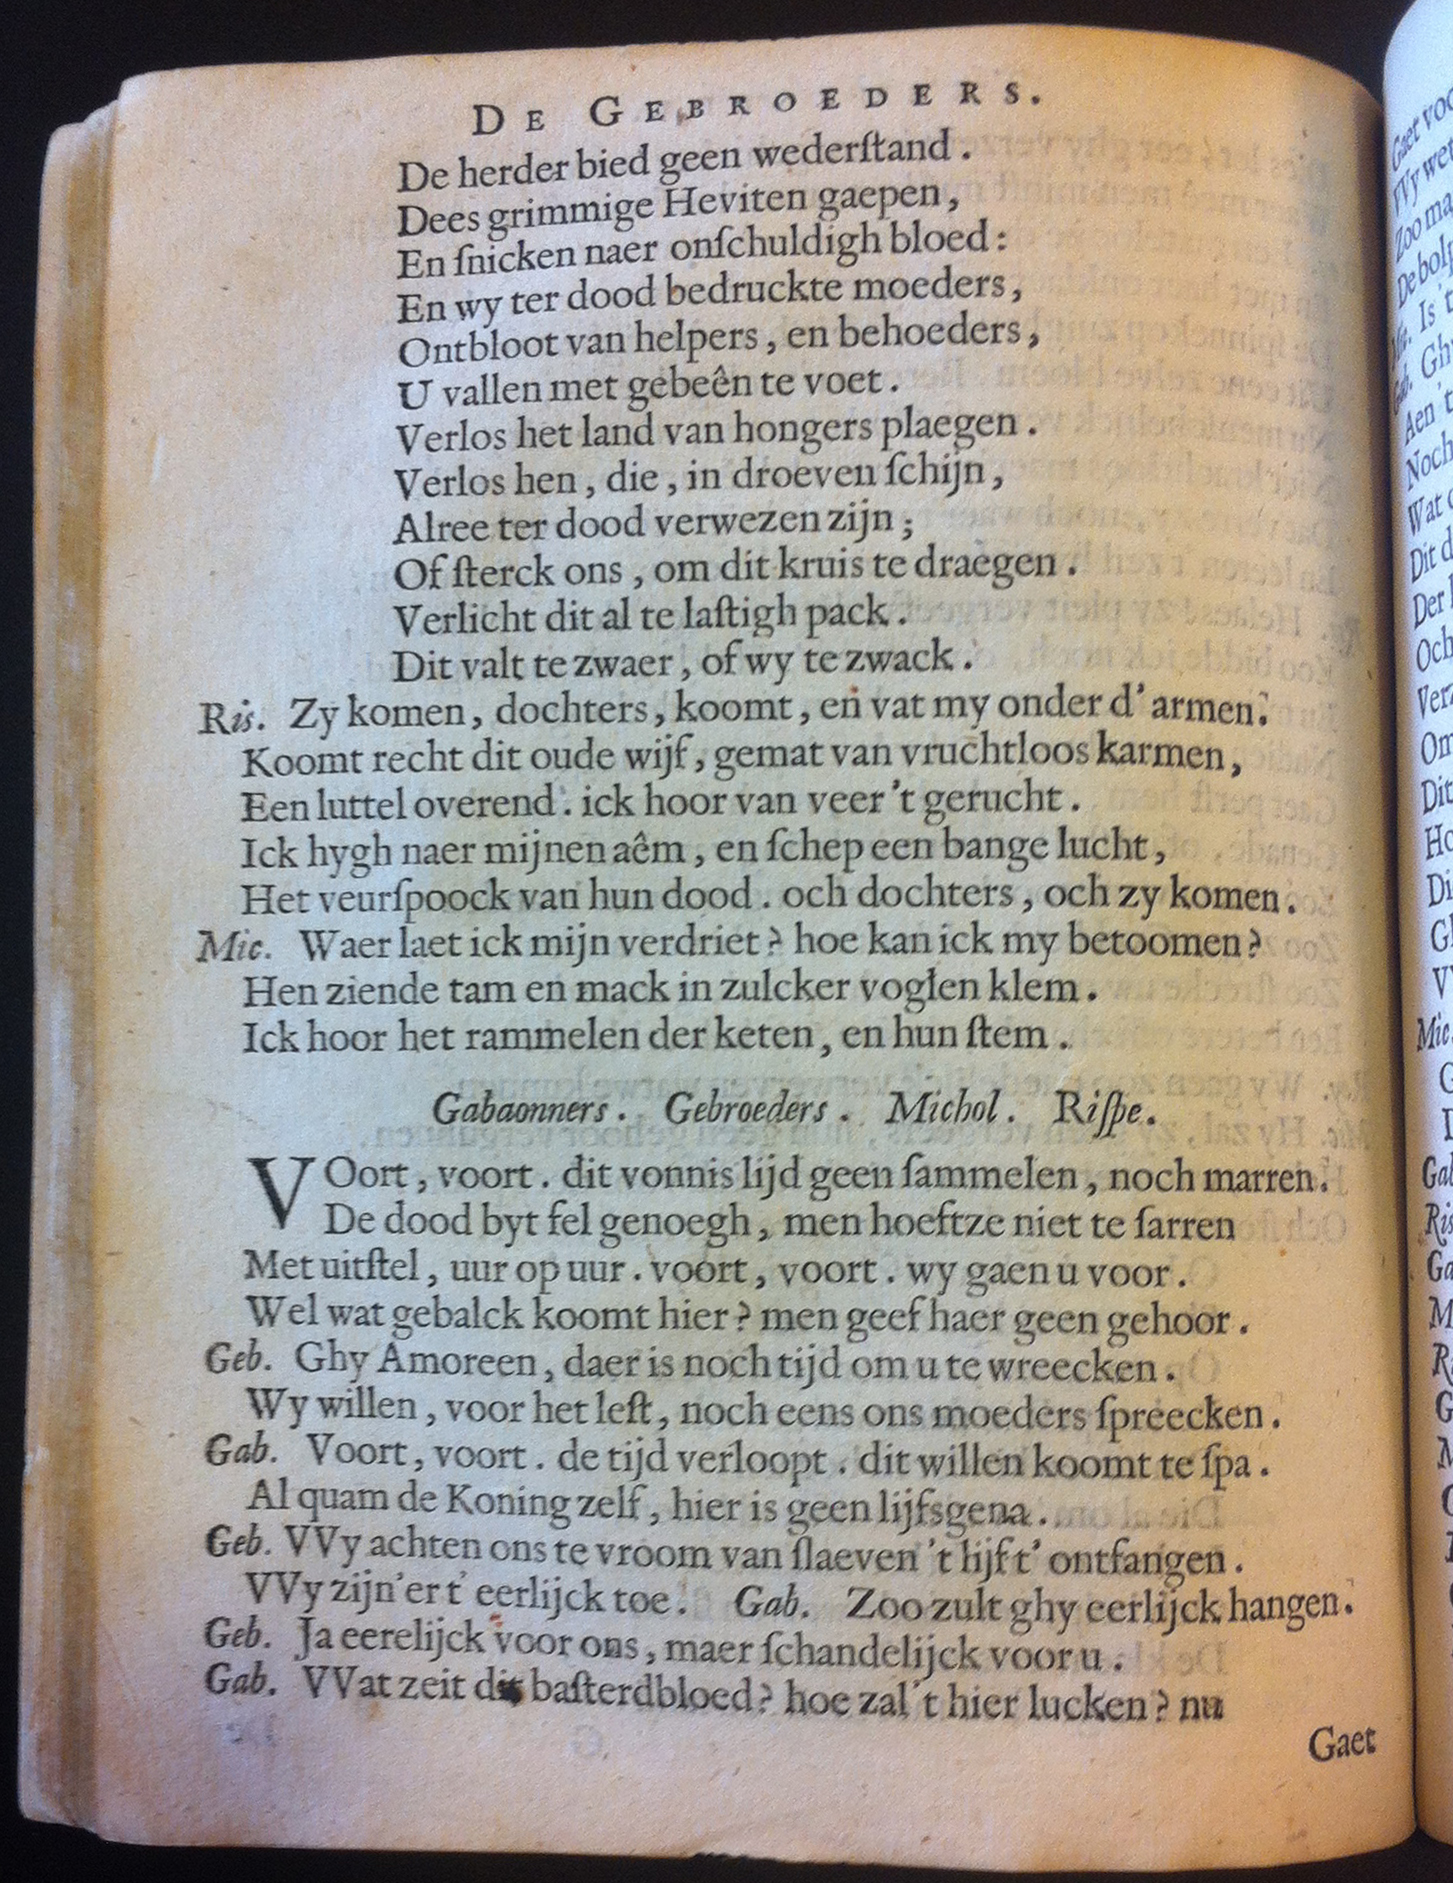 DE GEBROEDERS.
De herder bied geen wederſtand.
Dees grimmige Heviten gaepen,
En ſnicken naer onſchuldigh bloed:
En wy ter dood bedruckte moeders,
Ontbloot van helpers, en behoeders,
U vallen met gebeên te voet.
Verlos het land van hongers plaegen.
Verlos hen, die, in droeven ſchijn,
Alree ter dood verwezen zijn;
Of ſterck ons, om dit kruis te draegen.
Verlicht dit al te laſtigh pack.
Dit valt te zwaer, of wy te zwack.
Ris. Zy komen, dochters, koomt, en vat my onder d'armen.
Koomt recht dit oude wijf, gemat van vruchtloos karmen,
Een luttel overend. ick hoor van veer 't gerucht.
Ick hygh naer mijnen aêm, en ſchep een bange lucht,
Het veurſpoock van hun dood. och dochters, och zy komen.
Mic. Waer laet ick mijn verdriet? hoe kan ick my betoomen?
Hen ziende tam en mack in zulcker voglen klem.
Ick hoor het rammelen der keten, en hun ſtem.
Gabaonners. Gebroeders. Michol. Riſpe.
VOort, voort. dit vonnis lijd geen ſammelen, noch marren.
De dood byt fel genoegh, men hoeftze niet te ſarren
Met uitſtel, uur op uur. voort, voort. wy gaen u voor.
Wel wat gebalck koomt hier? men geef haer geen gehoor.
Geb. Ghy Amoreen, daer is noch tijd om u te wreecken.
Wy willen, voor het leſt, noch eens ons moeders ſpreecken.
Gab. Voort, voort. de tijd verloopt. dit willen koomt te ſpa.
Al quam de Koning zelf, hier is geen lijfsgena.
Geb. VVy achten ons te vroom van ſlaeven 't lijf t' ontfangen.
VVy zijn'er t' eerlijck toe. Gab. Zoo zult ghy eerlijck hangen.
Geb. Ja eerelijck voor ons, maer ſchandelijck voor u.
Gab. VVat zeit dit baſterdbloed? hoe zal 't hier lucken? nu
Gaet